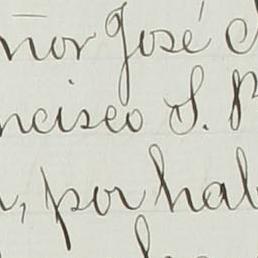 ñor José
ncisco S.
, por hab